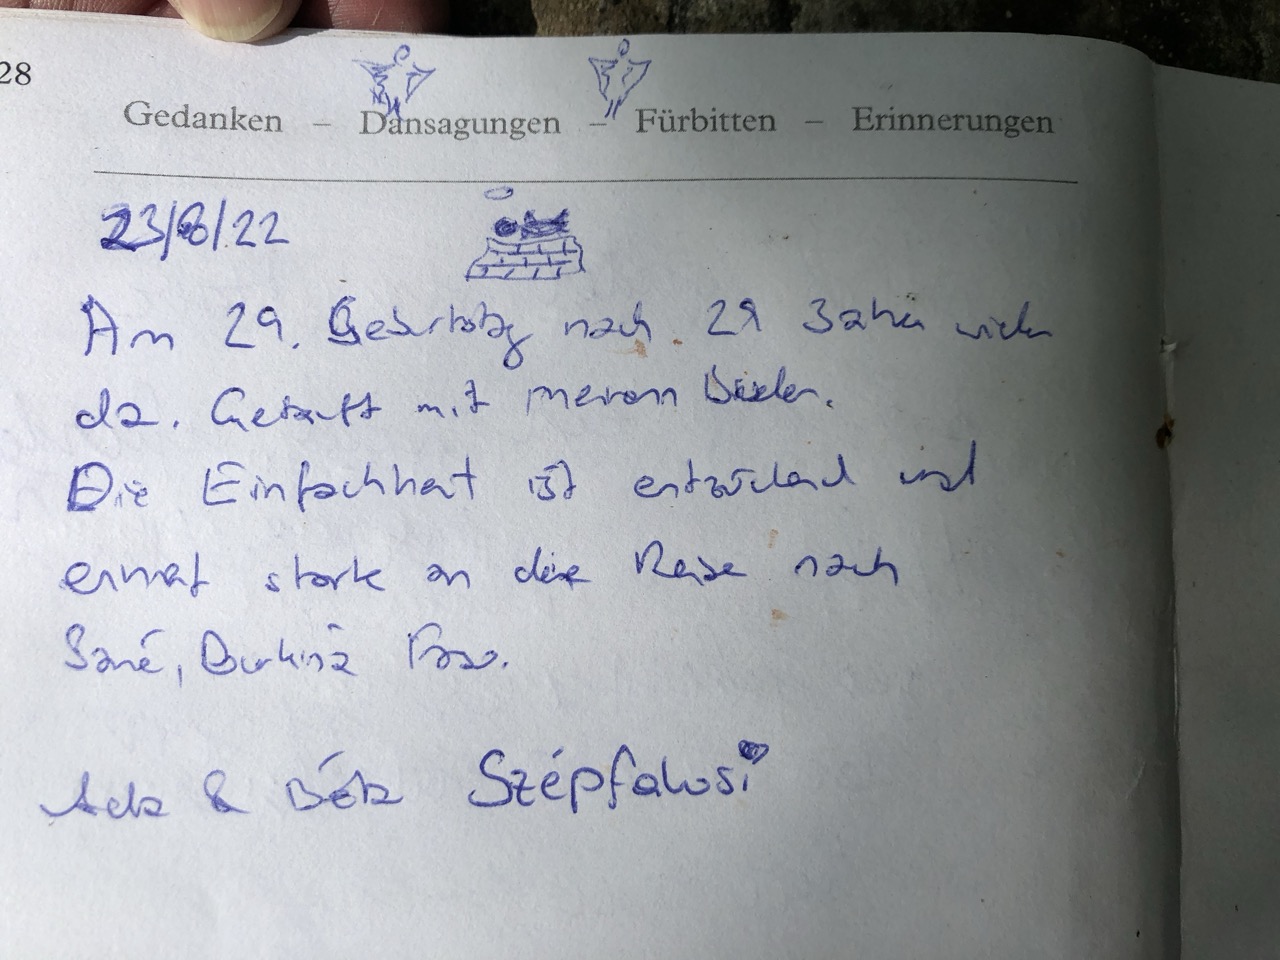 28
Gedanken – Danksagungen – Fürbitten – Erinnerungen
23/8/22
Am 29. Geburtstag nach 29 Jahren wieder
da. Getauft mit meinem Bruder.
Die Einfachheit ist entzückend und
erinnert stark an die Reise nach
Sané, Burkina Faso.
& Béla Szépfalusi